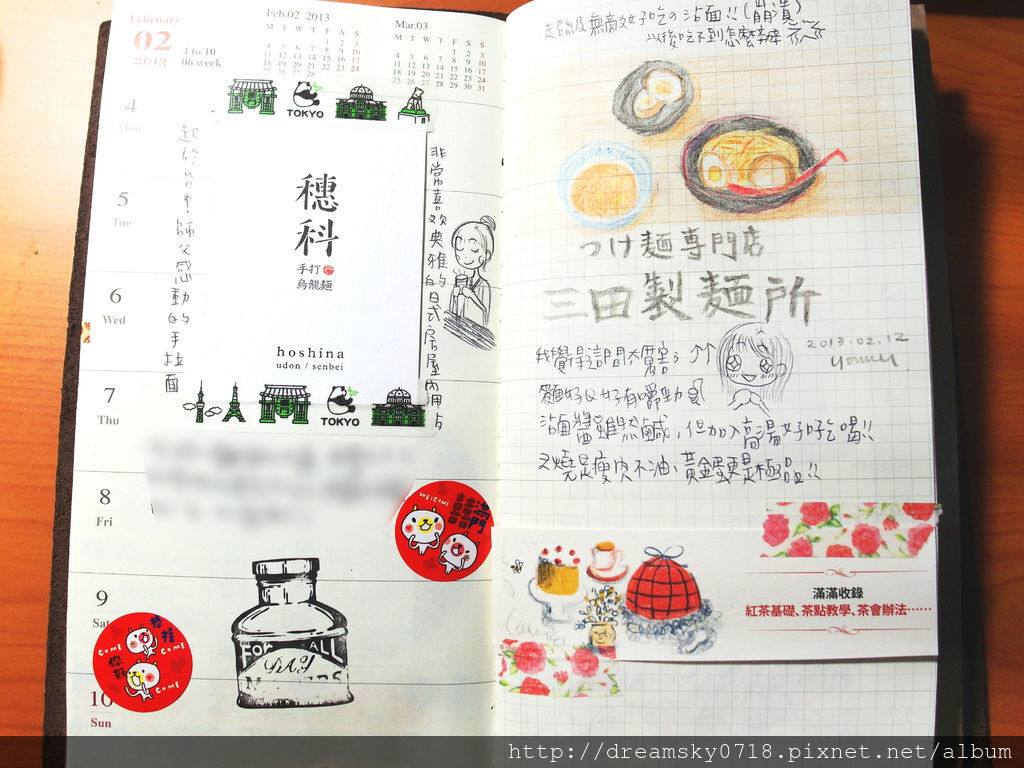 February
02
2013
4 to 10
06 week
Feb.02 2013
M T W T F S S
1 2 3
4 5 6 7 8 9 10
11 12 13 14 15 16 17
18 19 20 21 22 23 24
25 26 27 28
Mar.03
M T W T F S S
1 2 3
4 5 6 7 8 9 10
11 12 13 14 15 16 17
18 19 20 21 22 23 24
25 26 27 28 29 30 31
4
Mon
5
Tue
6
Wed
7
Thu
8
Fri
9
Sat
10
Sun
TOKYO
師父感動的手拉面
穗科
手打
烏龍麵
hoshina
udon / senbei
TOKYO
非常喜歡典雅的日式房屋內用占
WELCOME
囍
滿門
COME
COME
你好
COME
FOR ALL
DAY
超級無敵好吃の沾面!!(崩潰)
以後吃不到怎麼辦
つけ麺専門店
三田製麺所
2013.02.12
我覺得這間太厲害了↑↑
麵好Q好有嚼勁
沾面醬雖然鹹,但加入高湯好好喝!!
叉燒是瘦肉不油、黃金蛋更是極品!!
滿滿收錄
紅茶基礎、茶點教學、茶會辦法……
http://dreamsky0718.pixnet.net/album